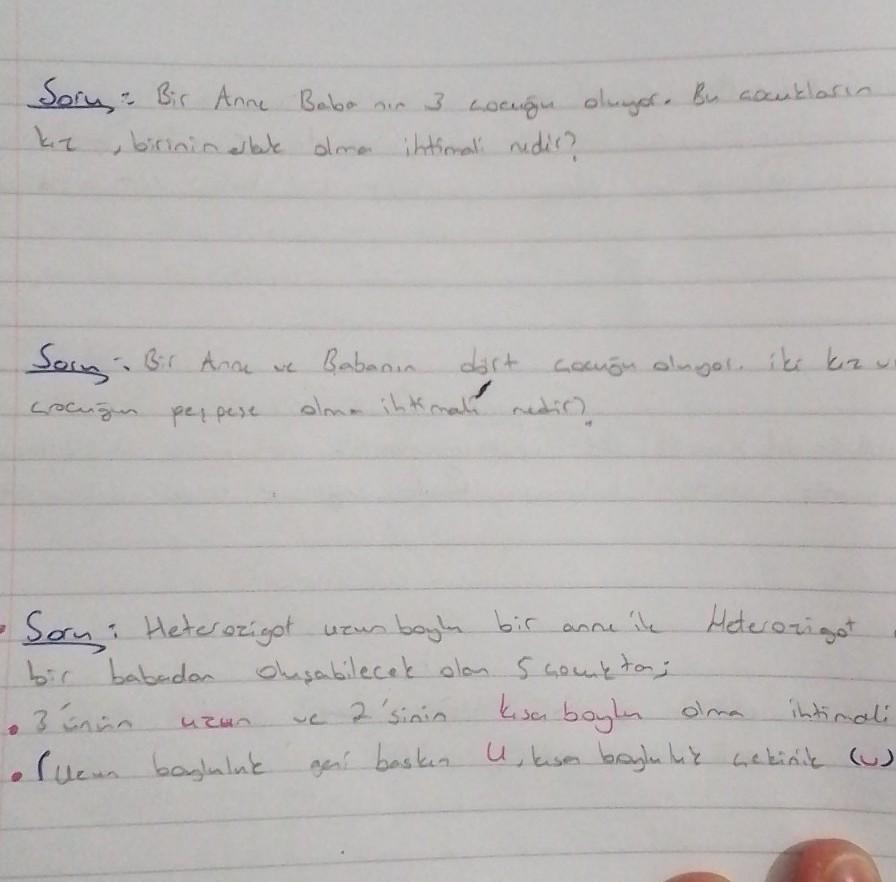 Soru: Bir Anne Baba nın 3 çocuğu oluyor. Bu çocukların
kız, birinin erkek olma ihtimali nedir?
Soru: Bir Anne ve Babanın dört çocuğu oluyor. iki kız
çocuğun peş peşe olma ihtimali nedir?
Soru: Heterozigot uzun boylu bir anne ile Heterozigot
bir babadan oluşabilecek olan 5 çocuktan;
• 3'ünün uzun ve 2'sinin kısa boylu olma ihtimali
• (Uzun boyluluk geni baskın U, kısa boyluluk çekinik (u)